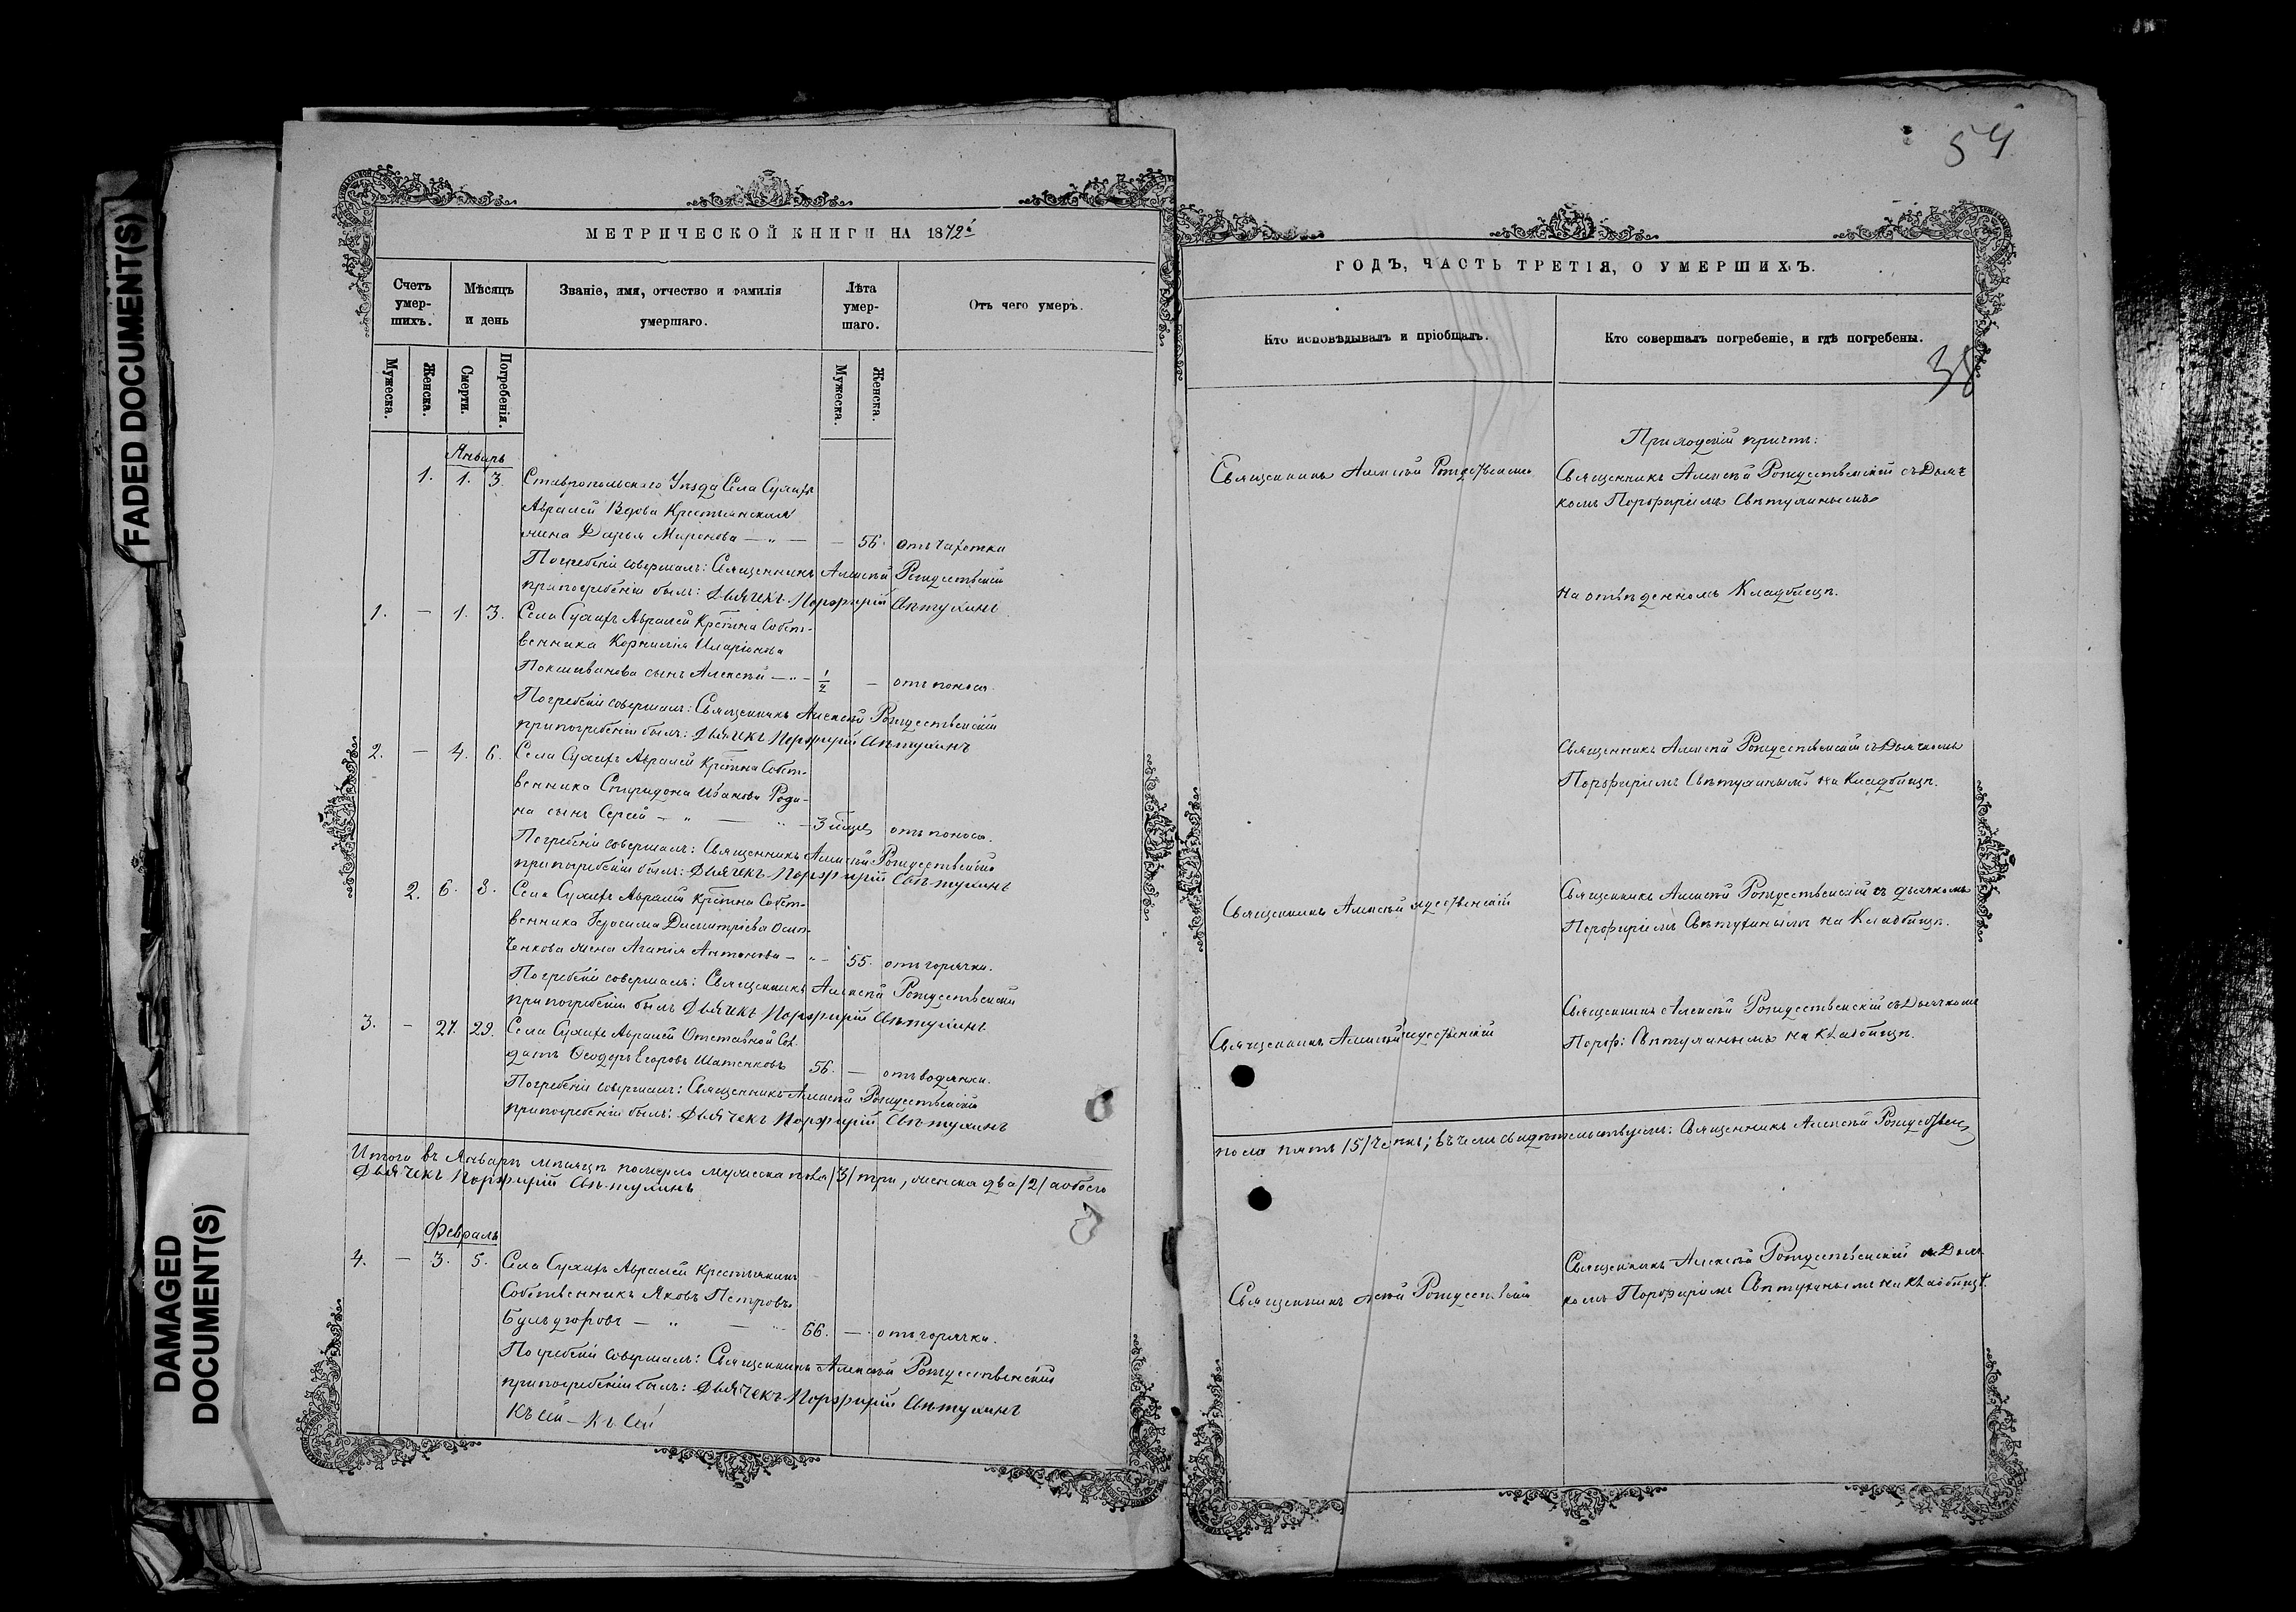 FADED DOCUMENT(S)
DAMAGED
DOCUMENT(S)
МЕТРИЧЕСКОЙ КНИГИ НА 1872й
Счетъ умер-шихъ.
Мѣсяцъ и день
Званіе, имя, отчество и фамилія умершаго.
Лѣта умер-шаго.
Отъ чего умеръ.
Мужеска.
Женска.
Смерти.
Погребенія.
Мужеска.
Женска.
Январь
1. 1. 3. Ставропольскаго Уѣзда Села Сухихъ
Авралей Вдова Крестьянская
жена Дарья Миронова — „ — — 56. отъ чахотки
Погребеніе совершалъ: Священникъ Алексѣй Рождественскій
при погребеніи былъ: Дьячекъ Порфирій Свѣтухинъ
1. — 1. 3. Села Сухихъ Авралей Крестьянина Собст-
венника Корнилія Иларіонова
сынъ Алексѣй — „ — 1/2 — отъ поноса.
Погребеніе совершалъ: Священникъ Алексѣй Рождественскій
при погребеніи былъ: Дьячекъ Порфирій Свѣтухинъ
2. — 4. 6. Села Сухихъ Авралей Крестьянина Собст-
венника Спиридона Иванова Роди-
на сынъ Сергѣй — „ — „ — 3 отъ поноса.
Погребеніе совершалъ: Священникъ Алексѣй Рождественскій
при погребеніи былъ: Дьячекъ Порфирій Свѣтухинъ
2. 6. 8. Села Сухихъ Авралей Крестьянина Собст-
венника Герасима Димитріева Осип-
ченкова жена Агапія Антонова — „ — 55. отъ горячки.
Погребеніе совершалъ: Священникъ Алексѣй Рождественскій
при погребеніи былъ Дьячекъ Порфирій Свѣтухинъ
3. — 27. 29. Села Сухихъ Авралей Отставной Сол-
датъ Ѳеодоръ Егоровъ Шатенковъ 56. — отъ водянки.
Погребеніе совершалъ: Священникъ Алексѣй Рождественскій
при погребеніи былъ: Дьячекъ Порфирій Свѣтухинъ
Итого въ Январѣ мѣсяцѣ померло мужеска пола /3/ три, женска два /2/ а обоего
Дьячекъ Порфирій Свѣтухинъ
Февраль
4. — 3. 5. Села Сухихъ Авралей Крестьянинъ
Собственникъ Яковъ Петровъ
— „ — 66. — отъ горячки.
Погребеніе совершалъ: Священникъ Алексѣй Рождественскій
при погребеніи былъ: Дьячекъ Порфирій Свѣтухинъ
Къ сей — Къ сей
54
ГОДЪ, ЧАСТЬ ТРЕТІЯ, О УМЕРШИХЪ.
Кто исповѣдывалъ и пріобщалъ.
Кто совершалъ погребеніе, и гдѣ погребены.
38
Приходскій причтъ:
Священникъ Алексѣй Рождественскій
Священникъ Алексѣй Рождественскій съ Дьяч
комъ Порфиріемъ Свѣтухинымъ
на отведенномъ Кладбищѣ.
Священникъ Алексѣй Рождественскій съ Дьячкомъ
Порфиріемъ Свѣтухинымъ на Кладбищѣ.
Священникъ Алексѣй ждественскій
Священникъ Алексѣй Рождественскій съ дьячкомъ
Порфиріемъ Свѣтухинымъ на Кладбищѣ.
Священникъ Алексѣй ждественскій
Священникъ Алексѣй Рождественскій съ Дьячкомъ
Порф: Свѣтухинымъ на Кладбищѣ.
пола пять /5/ челов; въ чемъ свидѣтельствуемъ: Священникъ Алексѣй Рождествен
Священникъ Рождественскій
Священникъ Алексѣй Рождественскій съ Дьяч
комъ Порфиріемъ Свѣтухинымъ на Кладбищѣ.